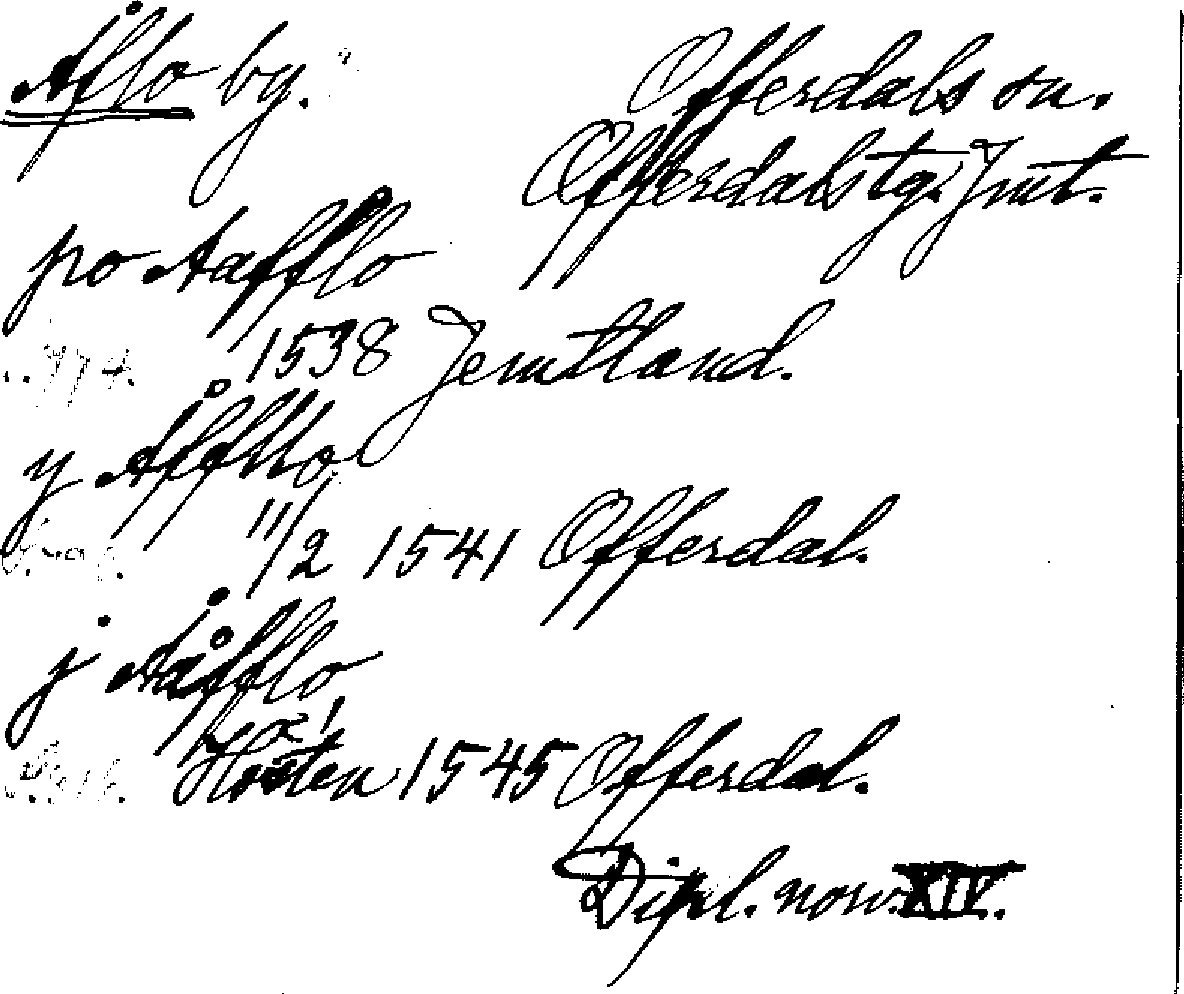 Åflo by. Offerdals sn.
Offerdals tg. Jmt.
po Aafflo
1538 Jemtland.
y Åffllo
11/2 1541 Offerdal.
j Aåfflo
Hösten 1545 Offerdal.
Dipl. norv. XIV.